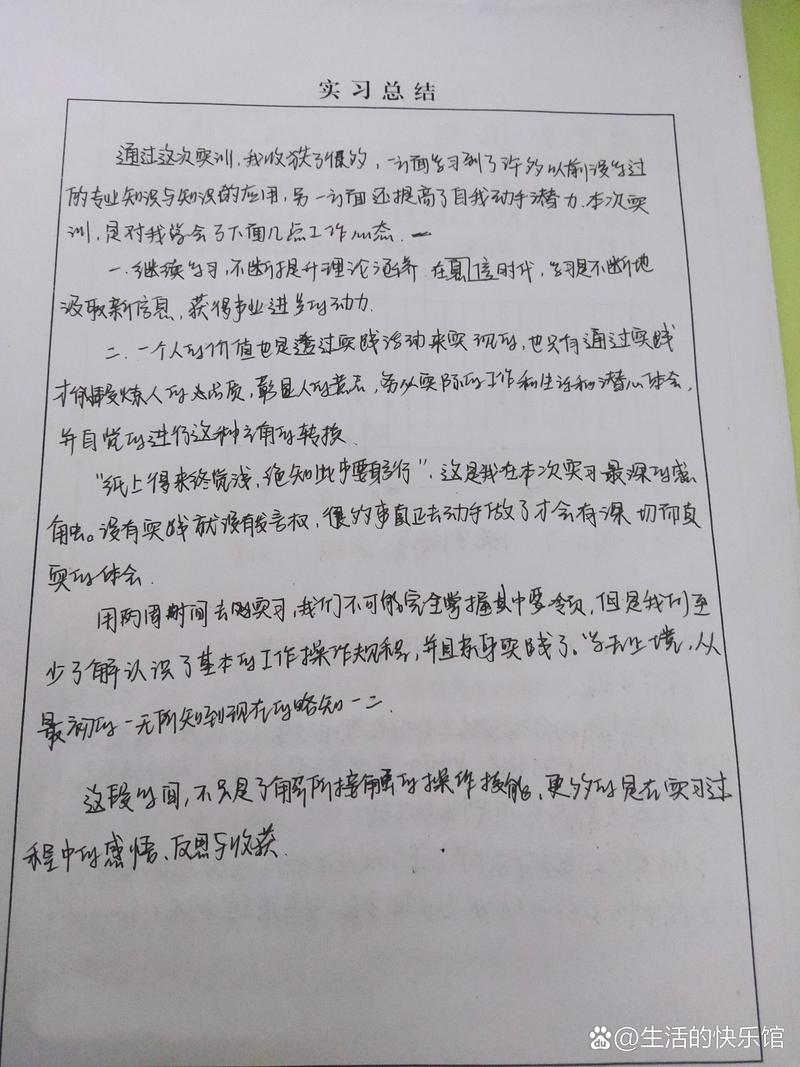 实习总结
通过这次实训,我收获了很多,一方面学习到了许多以前没学过
的专业知识与知识的应用,另一方面还提高了自我动手潜力.本次实
训,是对我学会了下面几点工作心态.
一.继续学习,不断提升理论涵养.在信时代,学习是不断地
汲取新信息,获得事业进步的动力.
二.一个人的价值也是透过实践活动来实现的,也只有通过实践
才能锻炼人的品质,彰显人的意志,务从实际的工作和生活和潜心体会,
并自觉的进行这种角的转换.
"纸上得来终觉浅,绝知此事要躬行",这是我在本次实习最深的感
触。没有实践就没有发言权,很多事真正去动手做了才会有深切而真
实的体会.
用两周时间去实习,我们不可能完全掌握其中要领,但是我们至
少了解认识了基本的工作操作规程,并且亲身实践了。学无止境,从
最初的一无所知到现在的略知一二.
这段时间,不只是了解所接触的操作技能,更多的是在实习过
程中的感悟、反思与收获.
@生活的快乐馆